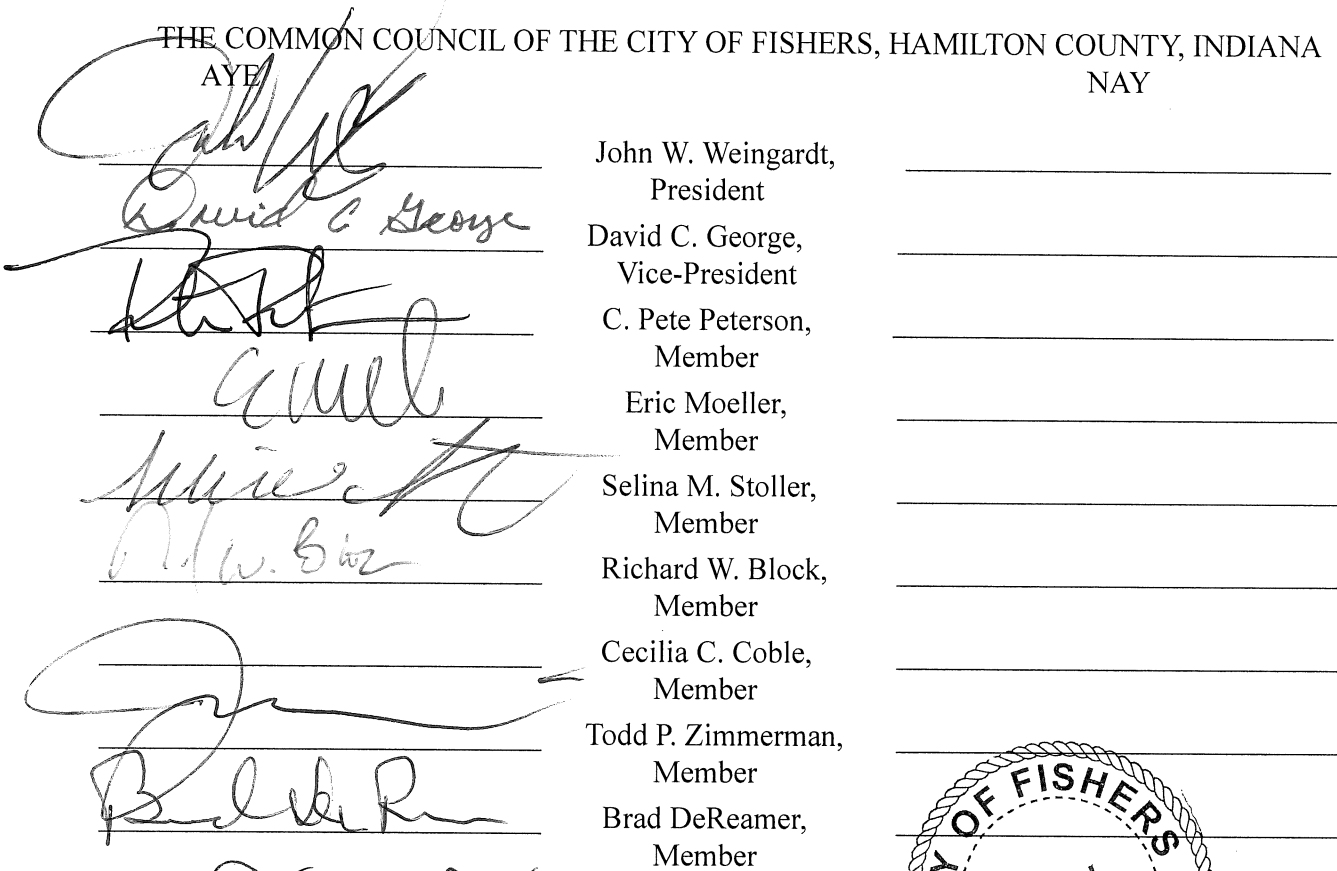 THE COMMON COUNCIL OF THE CITY OF FISHERS, HAMILTON COUNTY, INDIANA
AYE NAY
John W. Weingardt,
President
David C George
David C. George,
Vice-President
C. Pete Peterson,
Member
Eric Moeller,
Member
Selina M. Stoller,
Member
W.
Richard W. Block,
Member
Cecilia C. Coble,
Member
Todd P. Zimmerman,
Member
Brad DeR
Brad DeReamer,
Member
Y OF FISHERS